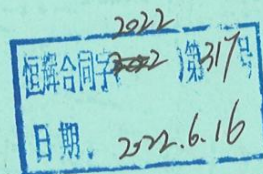 2022
恒辉合同字(2022)第317号
日期: 2022.6.16